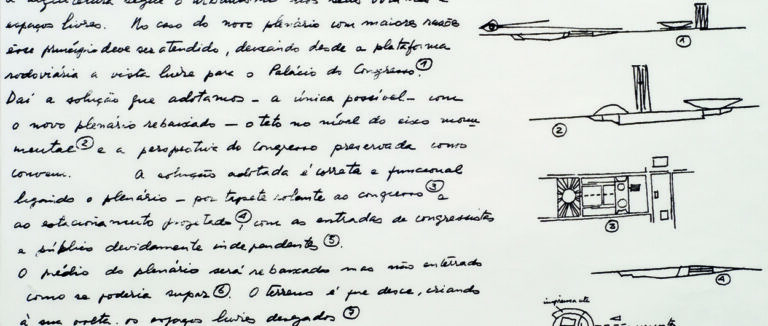 a arquitetura segue o urbanismo nos seus
espaços livres. No caso do novo plenário com maiores razões
esse princípio deve ser atendido, deixando desde a plataforma
rodoviária a vista livre para o Palácio do Congresso. 1
Daí a solução que adotamos – a única possível – com
o novo plenário rebaixado – o teto no nível do eixo monu
mental 2 e a perspectiva do Congresso preservada como
convem. A solução adotada é correta e funcional
ligando o plenário – por tapete rolante ao congresso 3 e
ao estacionamento projetado 4, com as entradas de congressistas
e público devidamente independentes 5.
O prédio do plenário será rebaixado mas não enterrado
como se poderia supor 6. O terreno é que desce, criando
à sua volta os espaços livres desejados 7
1
2
3
4
imprensa etc